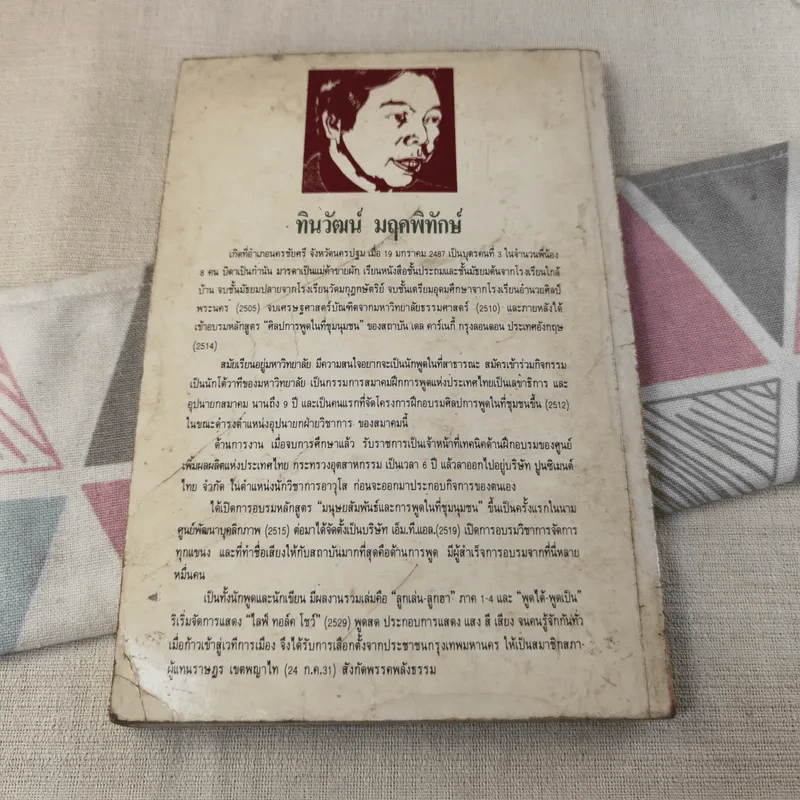 ทินวัฒน์ มฤคพิทักษ์
เกิดที่อำเภอนครชัยศรี จังหวัดนครปฐม เมื่อ 19 มกราคม 2487 เป็นบุตรคนที่ 3 ในจำนวนพี่น้อง
8 คน บิดาเป็นกำนัน มารดาเป็นแม่ค้าขายผัก เรียนหนังสือชั้นประถมและชั้นมัธยมต้นจากโรงเรียนใกล้
บ้าน จบชั้นมัธยมปลายจากโรงเรียนวัดมกุฎกษัตริย์ จบชั้นเตรียมอุดมศึกษาจากโรงเรียนอำนวยศิลป์
พระนคร (2505) จบเศรษฐศาสตร์บัณฑิตจากมหาวิทยาลัยธรรมศาสตร์ (2510) และภายหลังได้
เข้าอบรมหลักสูตร "ศิลปการพูดในที่ชุมนุมชน" ของสถาบัน เดล คาร์เนกี้ กรุงลอนดอน ประเทศอังกฤษ
(2514)
สมัยเรียนอยู่มหาวิทยาลัย มีความสนใจอยากจะเป็นนักพูดในที่สาธารณะ สมัครเข้าร่วมกิจกรรม
เป็นนักโต้วาทีของมหาวิทยาลัย เป็นกรรมการสมาคมฝึกการพูดแห่งประเทศไทยเป็นเลขาธิการ และ
อุปนายกสมาคม นานถึง 9 ปี และเป็นคนแรกที่จัดโครงการฝึกอบรมศิลปการพูดในที่ชุมชนขึ้น (2512)
ในขณะดำรงตำแหน่งอุปนายกฝ่ายวิชาการ ของสมาคมนี้
ด้านการงาน เมื่อจบการศึกษาแล้ว รับราชการเป็นเจ้าหน้าที่เทคนิคด้านฝึกอบรมของศูนย์
เพิ่มผลผลิตแห่งประเทศไทย กระทรวงอุตสาหกรรม เป็นเวลา 6 ปี แล้วลาออกไปอยู่บริษัท ปูนซิเมนต์
ไทย จำกัด ในตำแหน่งนักวิชาการอาวุโส ก่อนจะออกมาประกอบกิจการของตนเอง
ได้เปิดการอบรมหลักสูตร "มนุษยสัมพันธ์และการพูดในที่ชุมนุมชน" ขึ้นเป็นครั้งแรกในนาม
ศูนย์พัฒนาบุคลิกภาพ (2515) ต่อมาได้จัดตั้งเป็นบริษัท เอ็ม.ที.แอล.(2519) เปิดการอบรมวิชาการจัดการ
ทุกแขนง และที่ทำชื่อเสียงให้กับสถาบันมากที่สุดคือด้านการพูด มีผู้สำเร็จการอบรมจากที่นี่หลาย
หมื่นคน
เป็นทั้งนักพูดและนักเขียน มีผลงานรวมเล่มคือ "ลูกเล่น-ลูกฮา" ภาค 1-4 และ "พูดได้-พูดเป็น"
ริเริ่มจัดการแสดง "ไลฟ์ ทอล์ค โชว์" (2529) พูดสด ประกอบการแสดง แสง สี เสียง จนคนรู้จักกันทั่ว
เมื่อก้าวเข้าสู่เวทีการเมือง จึงได้รับการเลือกตั้งจากประชาชนกรุงเทพมหานคร ให้เป็นสมาชิกสภา-
ผู้แทนราษฎร เขตพญาไท (24 ก.ค.31) สังกัดพรรคพลังธรรม